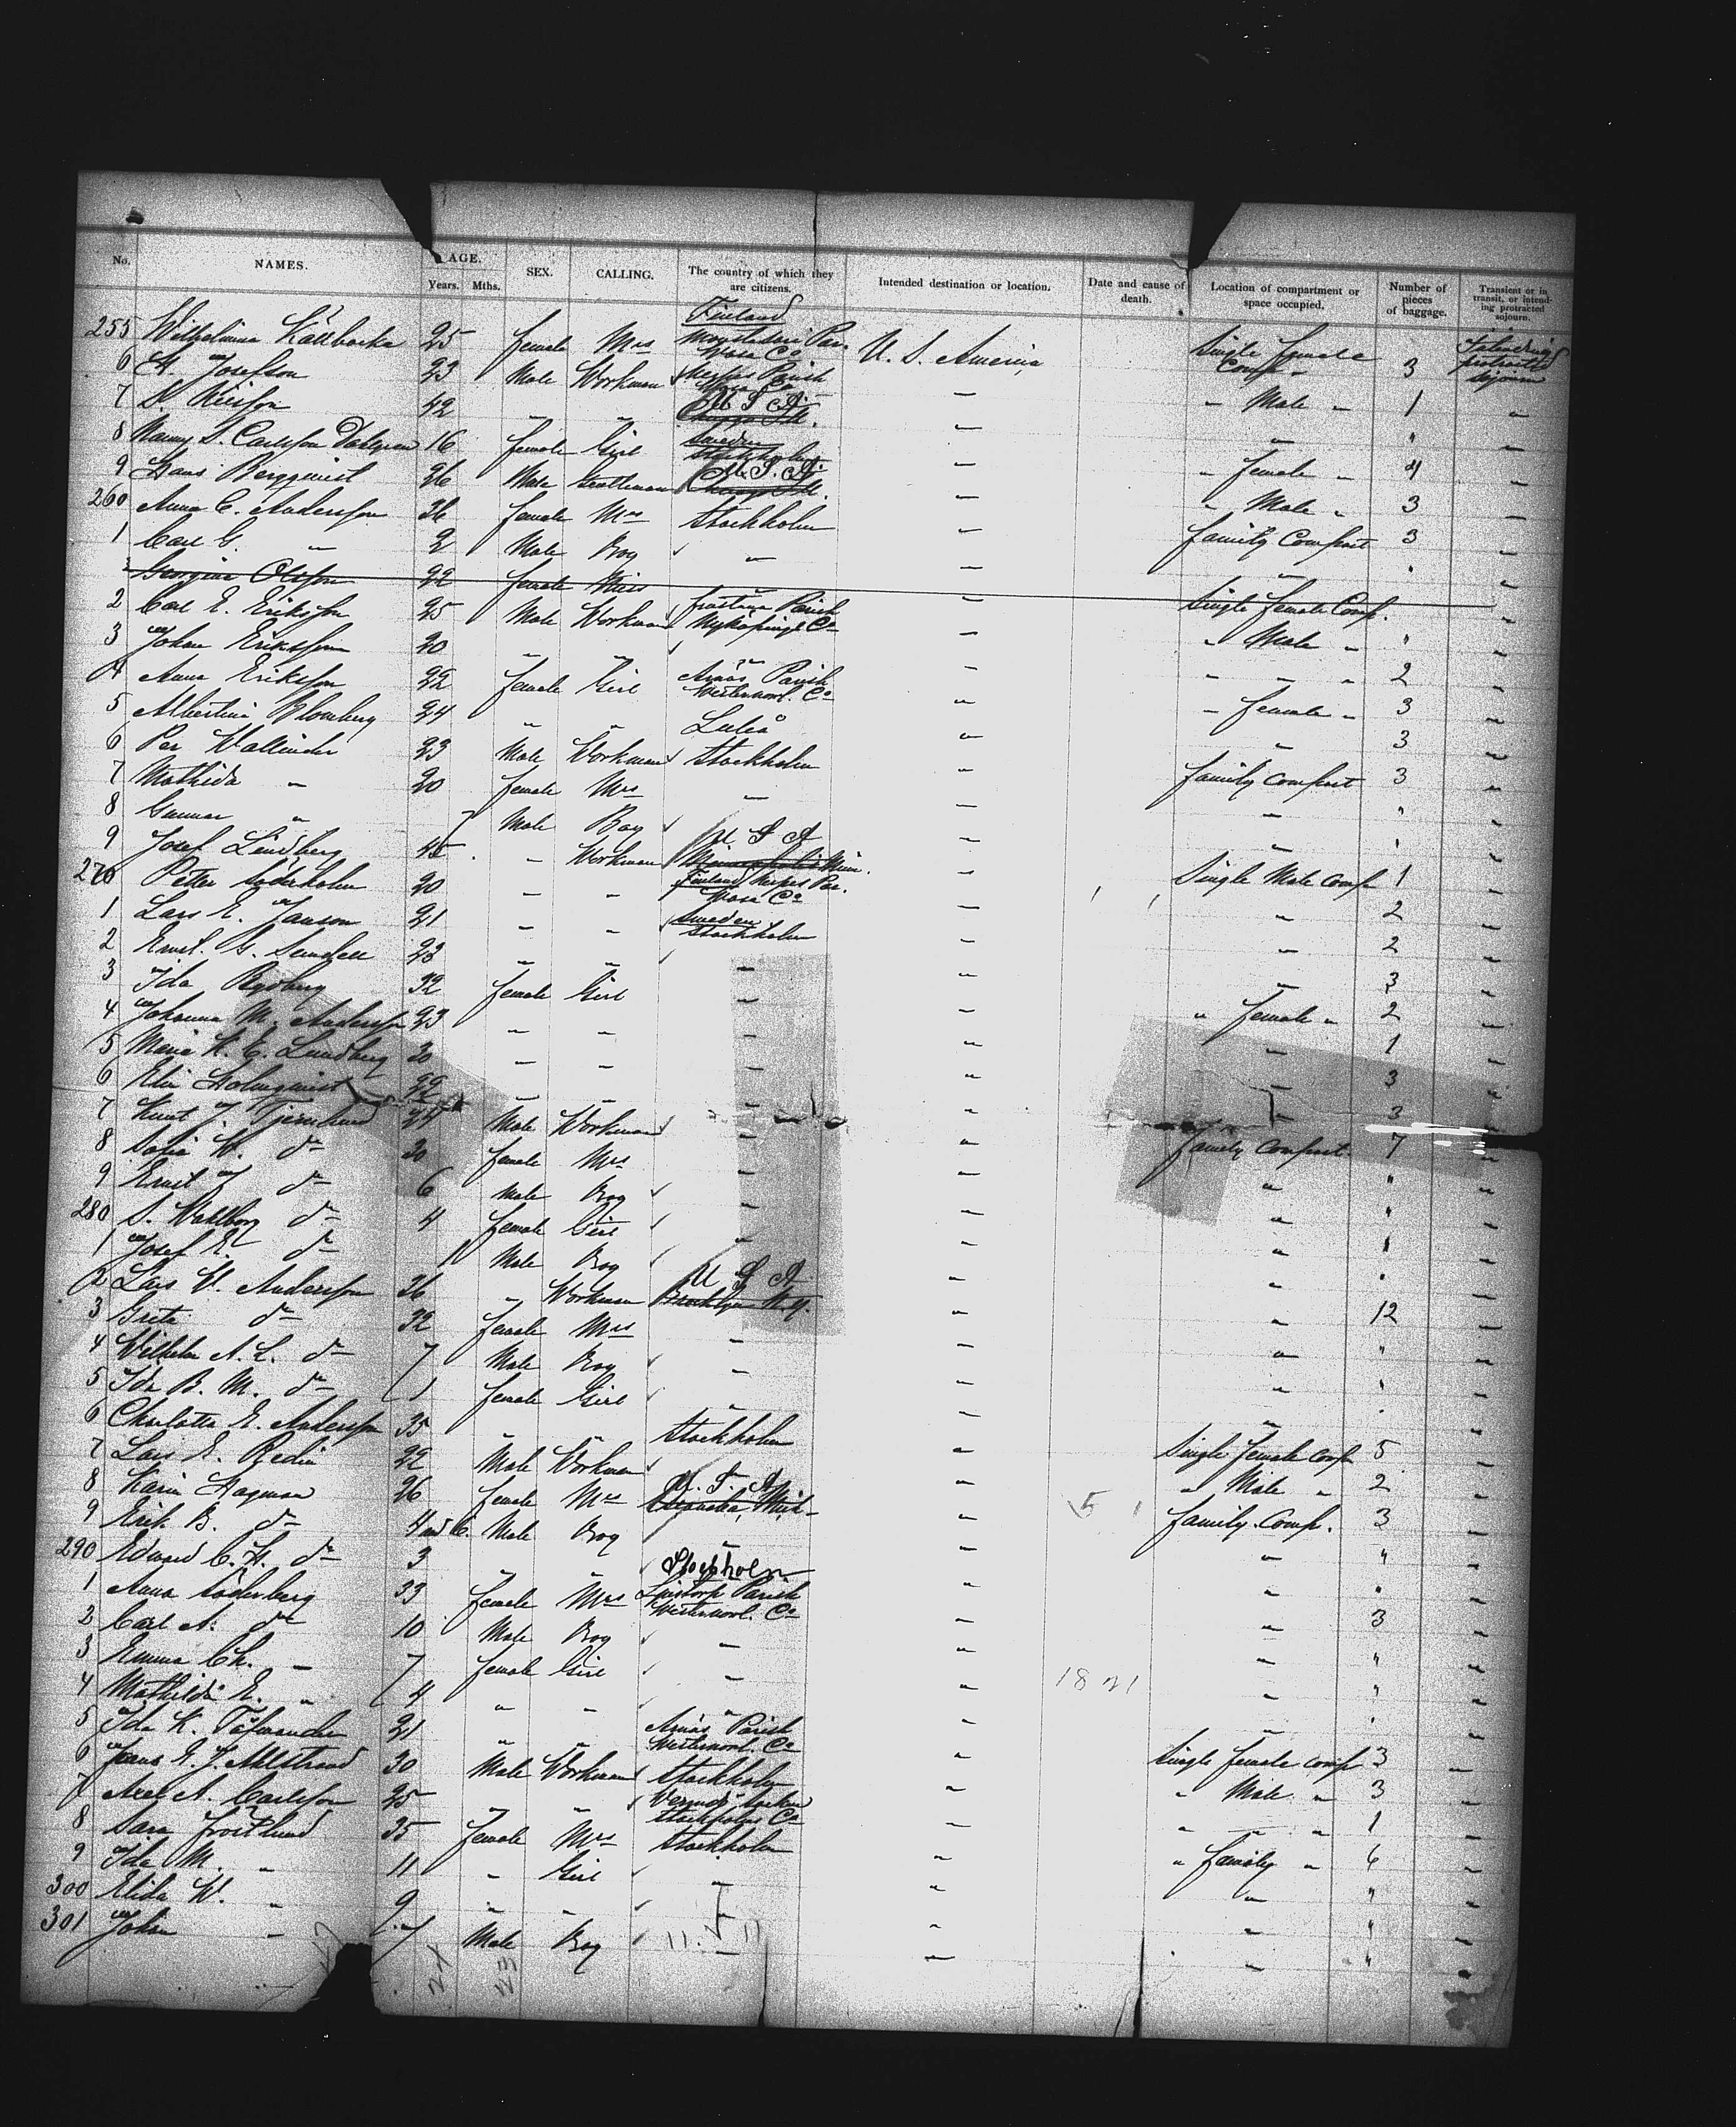 No. NAMES. AGE. Years. Mths. SEX. CALLING. The country of which they are citizens. Intended destination or location. Date and cause of death. Location of compartment or space occupied. Number of pieces of baggage. Transient or in transit, or intending protracted sojourn.
Finland
255 Wilhelmina 25 female Mrs Par. Wasa Co U. S. America Single female Comp. 3 Intending protracted sojourn
6 H. Josefson 23 Male Workman Parish Wasa Co " Male " 1 "
7 42 " " U S A Chicago Ill. " " " "
8 Nanny S. Carlsson Dalgren 16 female Girl Sweden Stockholm " " female " 4 "
9 Hans Bergquist 26 Male Gentleman U. S. A. Chicago Ill. " " Male " 3 "
260 Anna C. Andersson 36 female Mrs Stockholm " family Compart 3 "
1 Carl G. " 2 Male Boy " " " " "
Georgina Olsson 22 female Miss " " Single female Comp.
2 Carl E. Eriksson 25 Male Workman Parish Nyköpings Co " " Male " " "
3 Johan Eriksson 20 " " " " " " " 2 "
4 Anna Eriksson 22 female Girl Arnäs Parish Westernorl. Co " " female " 3 "
5 Albertina Blomberg 24 " " Luleå " " 3 "
6 Per Wallinder 23 Male Workman Stockholm " family compart 3 "
7 Mathilda " 20 female Mrs " " " " "
8 Gunnar " 7 Male Boy " " " "
9 Josef Lindberg 45 " Workman U S A Minneapolis Minn. " Single Male Comp 1 "
270 Petter Söderholm 20 " " Finland Par. Wasa Co " " 2 "
1 Lars E. Janson 21 " " Sweden Stockholm " " 2 "
2 Ernst G. 23 " " " " " 3 "
3 Ida Rydberg 32 female Girl " " " female " 2 "
4 Johanna M. Andersson 23 " " " " " 1 "
5 Maria K. C. Lundberg 30 " " " " " 3 "
6 Elin Holmquist 22 " " " " " 3 "
7 Knut J. 27 Male Workman " " family Compart. 7 "
8 Sofia W. do 30 female Mrs " " " " "
9 Ernst J do 6 Male Boy " " " " "
280 S. Walborg do 4 female Girl " " " " "
1 Josef E. do 1 Male Boy " " " " "
2 Lars W. Andersson 36 " Workman U S A Brooklyn N.Y. " " 12 "
3 Greta do 32 female Mrs " " " " "
4 Wilhelm A. L. do 7 Male Boy " " " " "
5 Ida B. M. do 1 female Girl " " " " "
6 Charlotta E. Andersson 35 " " Stockholm " Single Female comp 5 "
7 Lars E. Redin 22 Male Workman " " Male " 2 "
8 Karin Hagman 26 female Mrs U. S. A Escanaba, Mich. " family. Comp. 3 "
9 Erik B. do 4 Male Boy " " " " "
290 Edward C. H. do 3 " " Stockholm " " " "
1 Anna Söderberg 33 female Mrs Parish Westernorl. Co " " 3 "
2 Carl A. do 10 Male Boy " " " " "
3 Emma Ch. " 7 female Girl " " " " "
4 Mathilda E. " 4 " " " " " " "
5 Ida K. 21 " " Arnäs Parish Westernorl. Co " Single female comp 3 "
6 E. J. Ahlstrand 30 Male Workman Stockholm " " Male " 3 "
7 Axel A. Carlsson 25 " " Stockholms Co " " " " 1 "
8 Sara Frostlund 35 female Mrs Stockholm " " family " 6 "
9 Ida M. " 11 " Girl " " " " "
300 Elida W. " 9 " " " " " " "
301 Johan " 7 Male Boy " " " " "